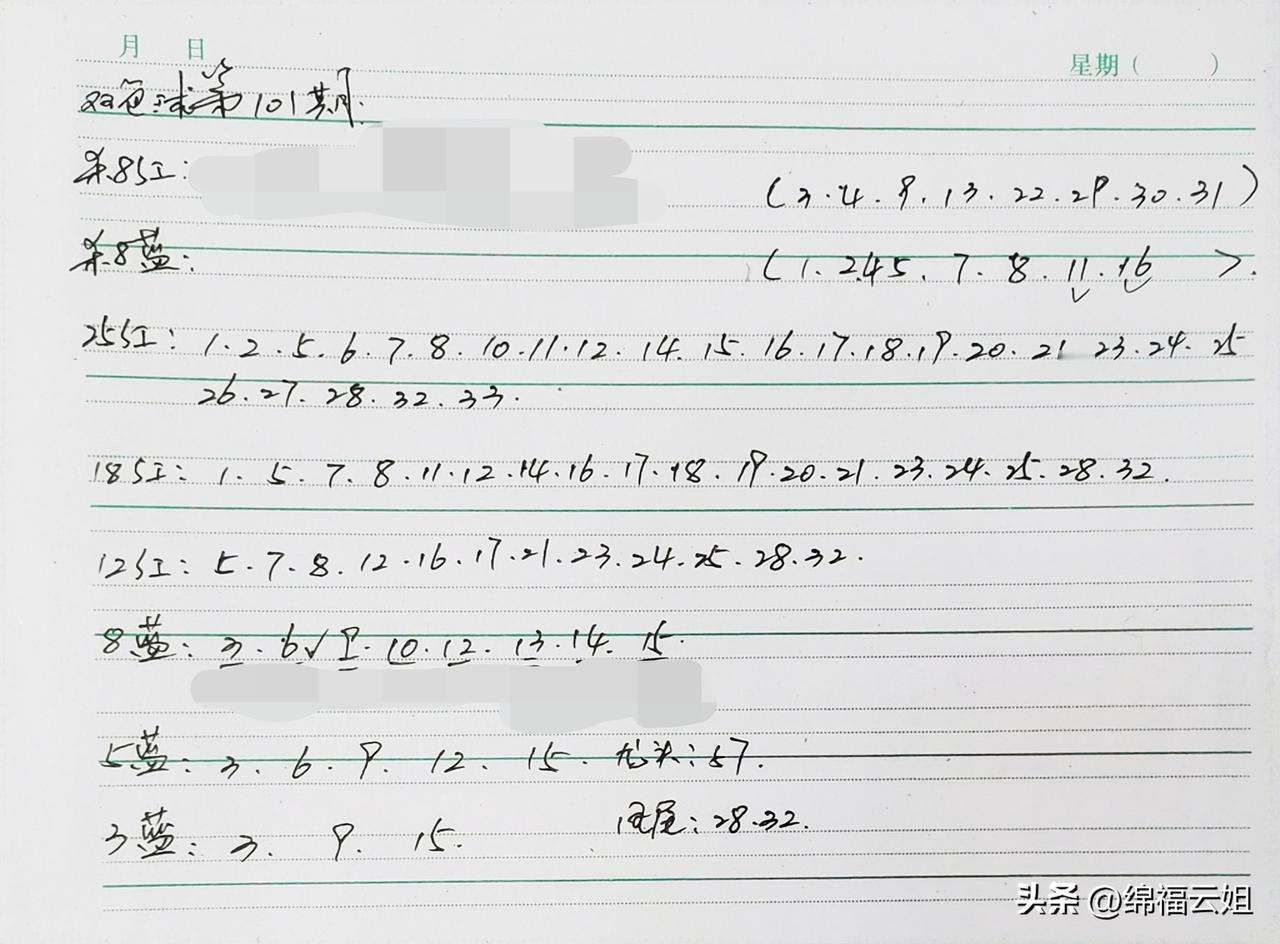 月 日
星期( )
双色球第101期.
杀8红:
(3.4.9.13.22.29.30.31)
杀8蓝:
(1.2.4.5.7.8.11.16).
25红: 1.2.5.6.7.8.10.11.12.14.15.16.17.18.19.20.21 23.24.25
26.27.28.32.33.
18红: 1.5.7.8.11.12.14.16.17.18.19.20.21.23.24.25.28.32.
12红: 5.7.8.12.16.17.21.23.24.25.28.32.
8蓝: 3.6√9.10.12.13.14.15.
5蓝: 3.6.9.12.15. 龙头: 5 7.
3蓝: 3. 9. 15.
凤尾: 28.32.
头条 @绵福云姐